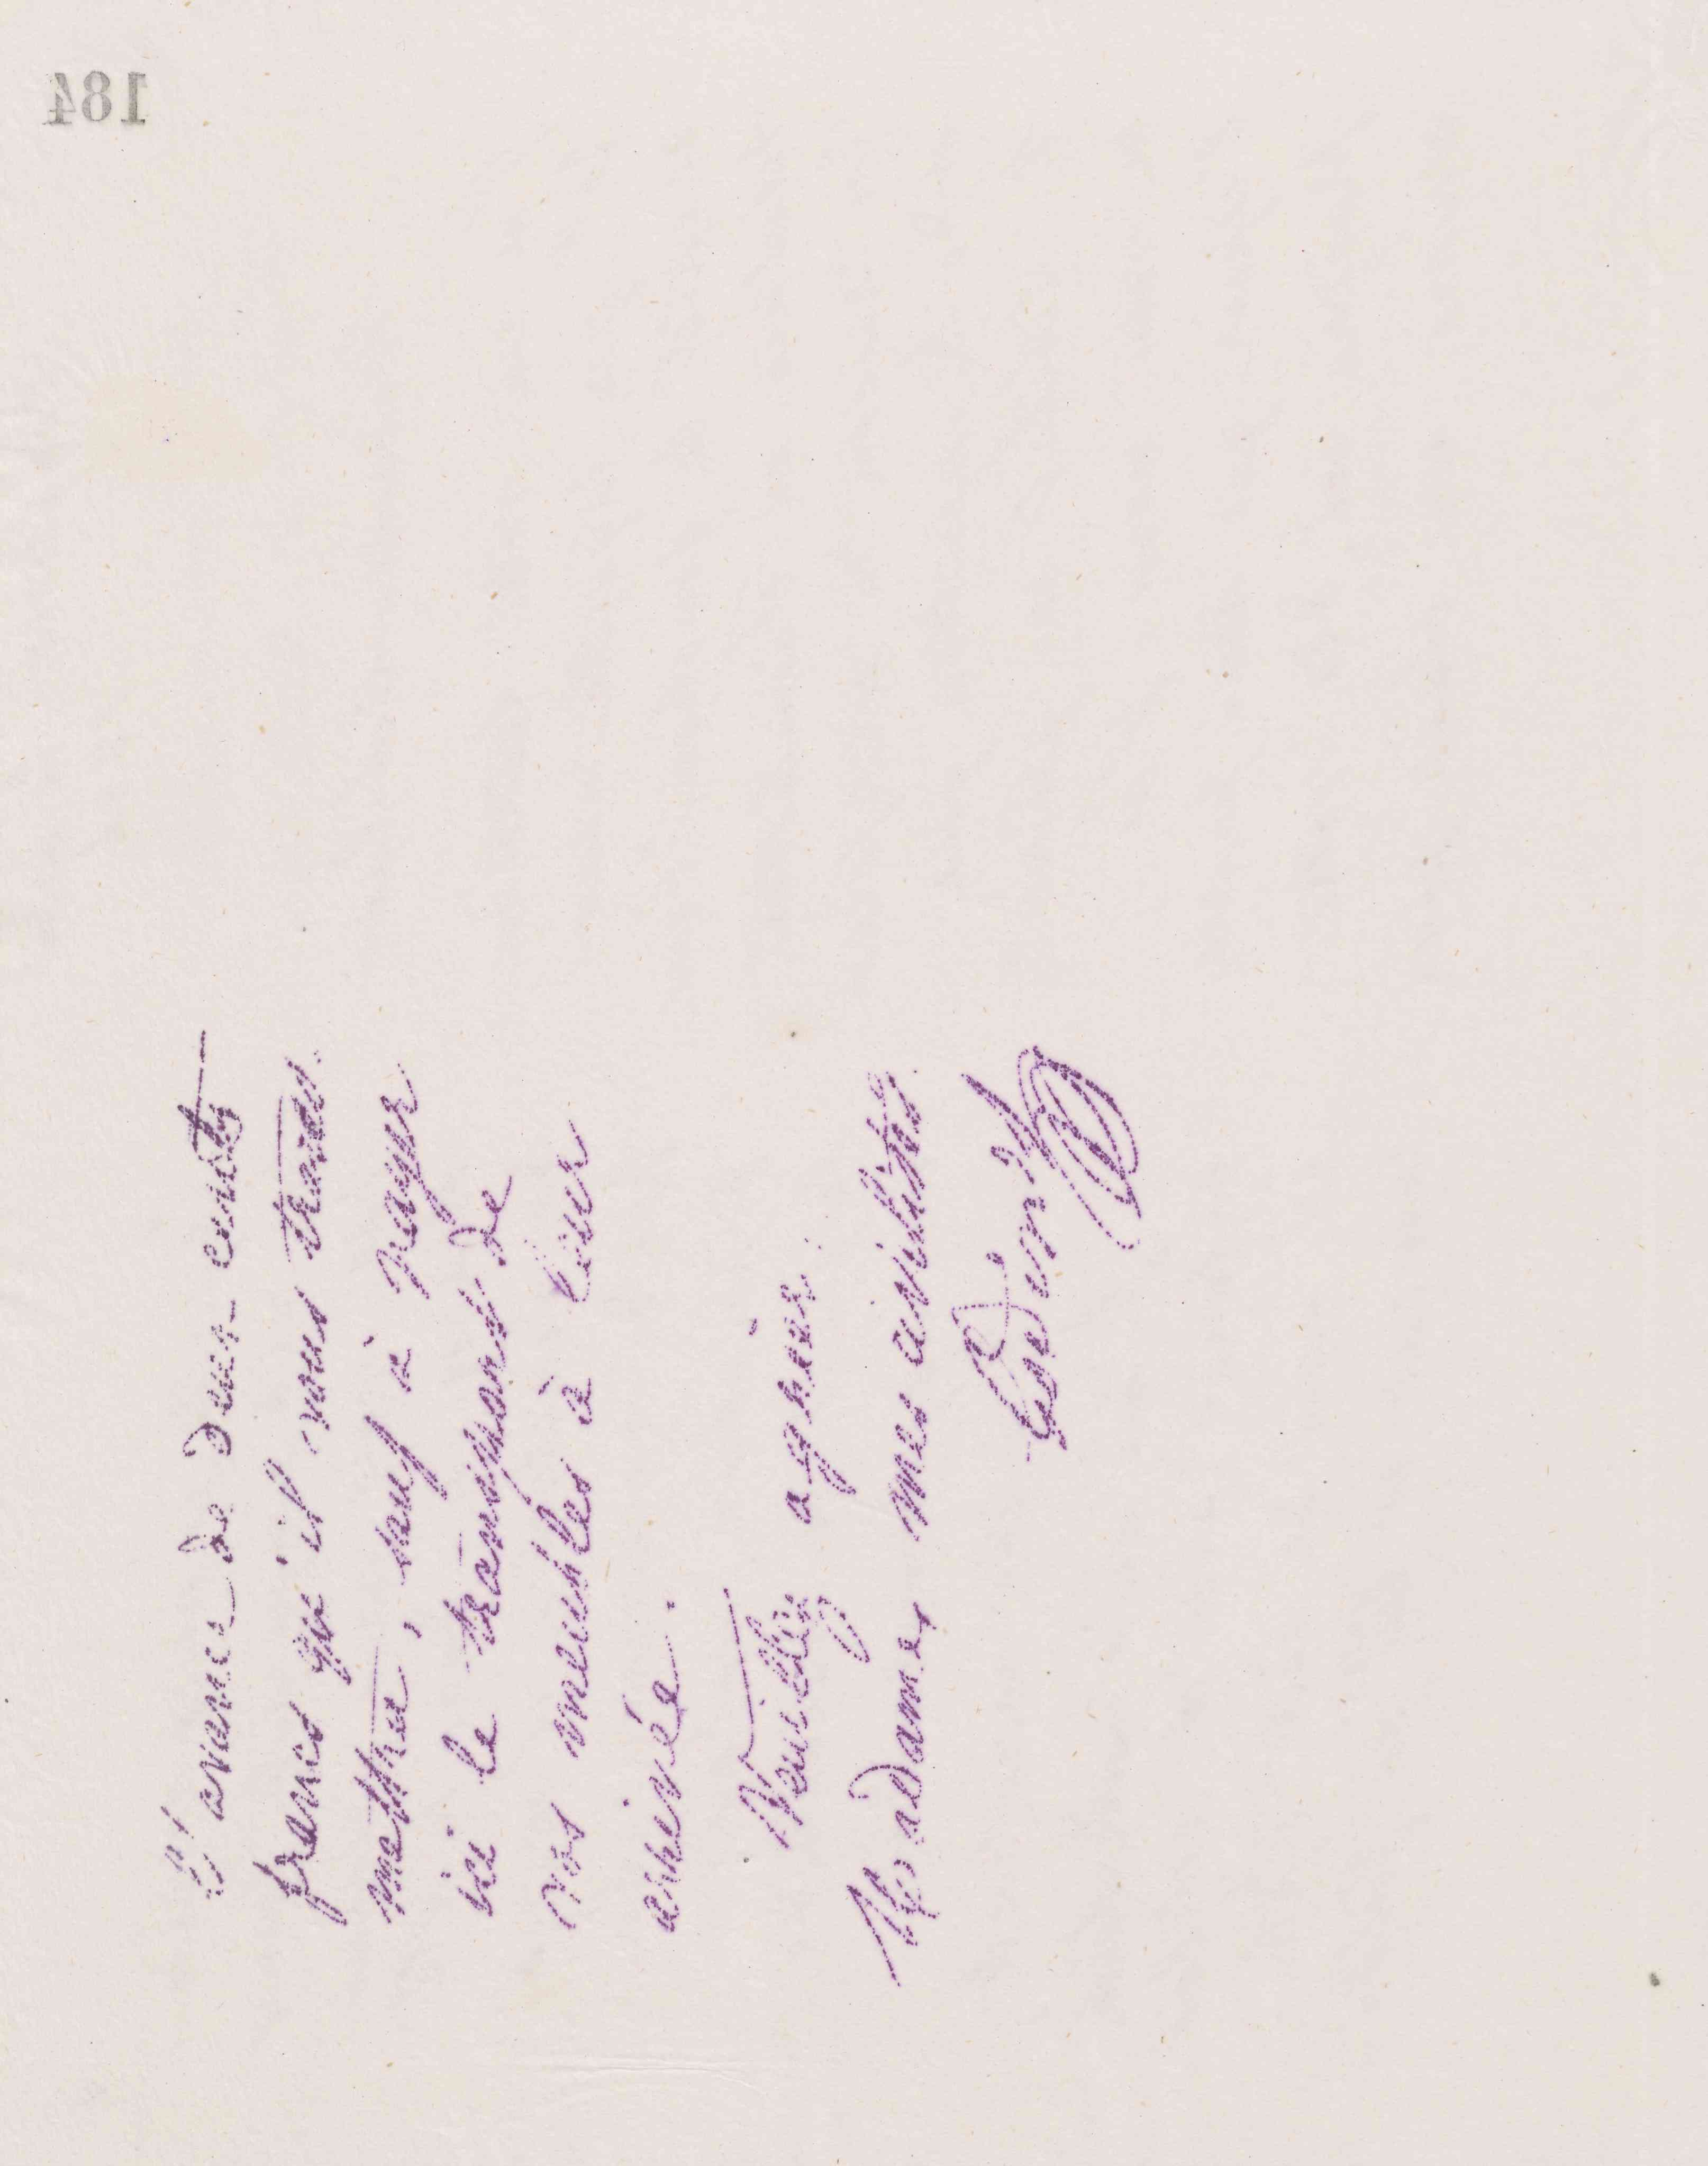 184
L'avance de deux cents
francs qu'il vous trans.
mettra, sauf à payer
ici le transport de
vos meubles à leur
arrivée.
Veuillez agréer.
Madame, mes civilités
Godin